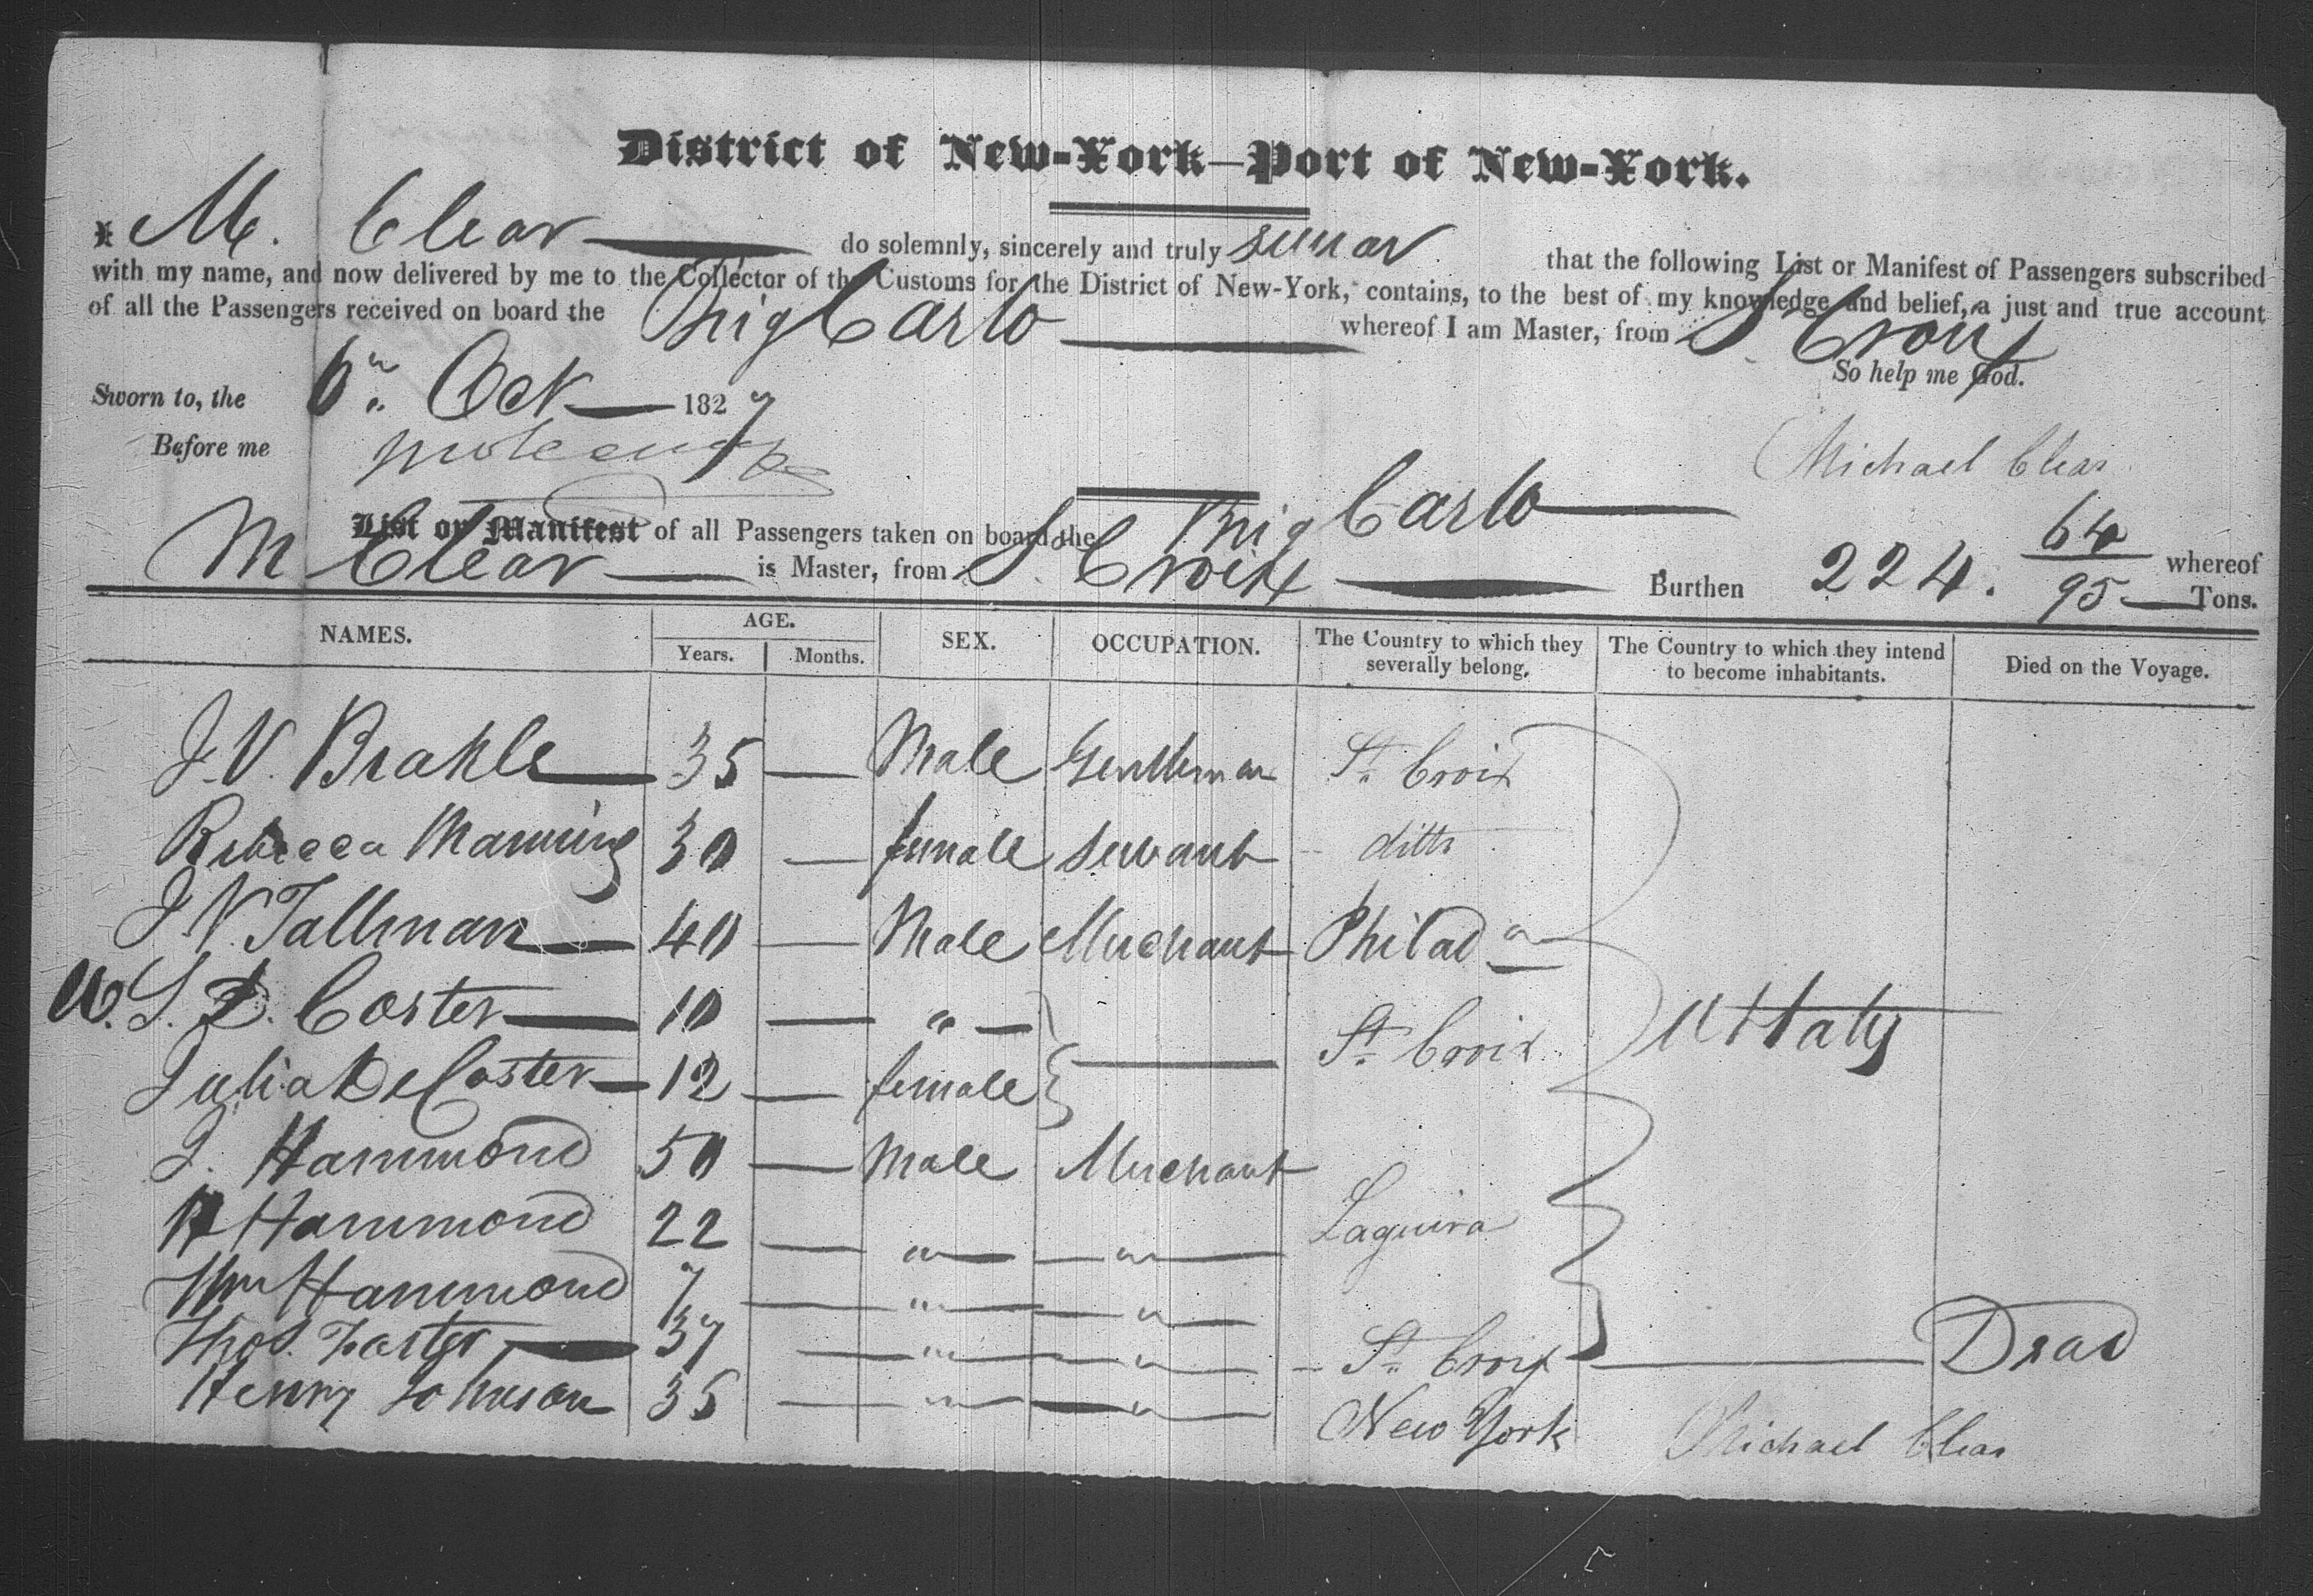 District of New-York—Port of New-York.
I M. Clear do solemnly, sincerely and truly swear that the following List or Manifest of Passengers subscribed
with my name, and now delivered by me to the Collector of the Customs for the District of New-York, contains, to the best of my knowledge and belief, a just and true account
of all the Passengers received on board the Brig Carlo whereof I am Master, from St Croix
So help me God.
Sworn to, the 6th Oct 1827
Before me
Michael Clear
List or Manifest of all Passengers taken on board the Brig Carlo whereof
M Clear is Master, from St Croix Burthen 224. 64/95 Tons.
NAMES. AGE. Years. Months. SEX. OCCUPATION. The Country to which they severally belong. The Country to which they intend to become inhabitants. Died on the Voyage.
J. V. Brahle 35 — Male Gentleman St. Croix
Rebecca Manning 30 — female Servant ditto
J. V. Tallman 40 — Male Merchant Philad a
W. S. D. Coster 10 — " —
Julia De Coster 12 — female — St. Croix
J. Hammond 50 — Male Merchant
H Hammond 22 — " — " Laguira
Wm Hammond 7 — " — "
Thos. Foster 37 — " — " — St. Croix — Dead
Henry Johnson 35 — " — " New York
Michael Clear